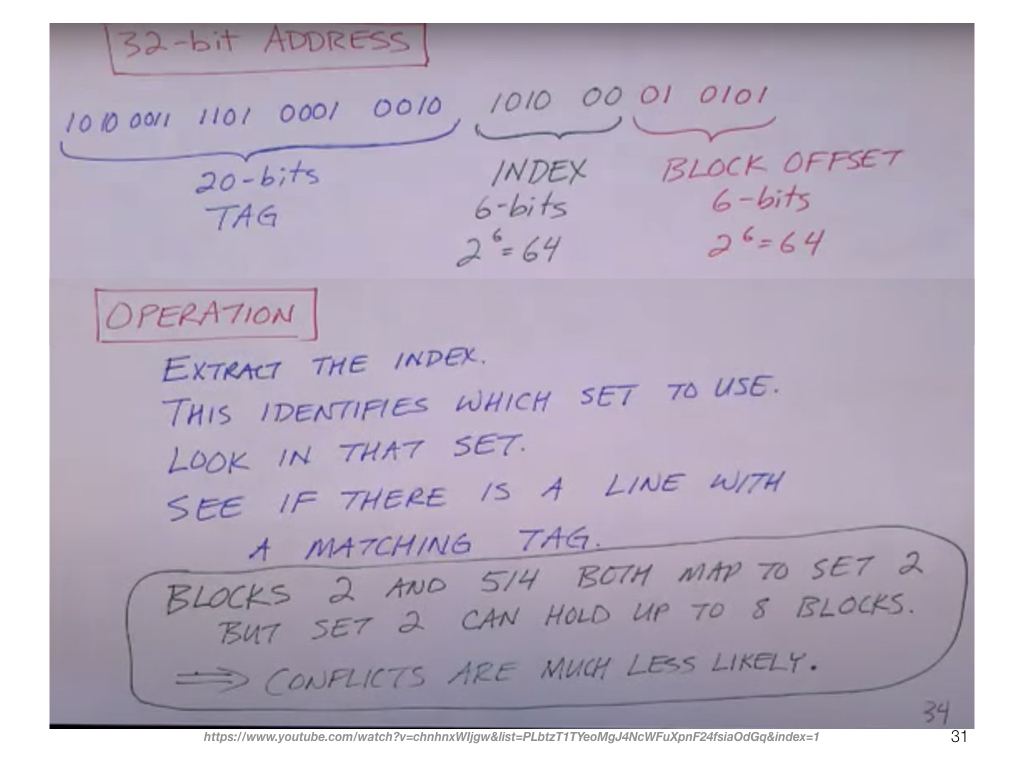 32-bit ADDRESS
1010 0011 1101 0001 0010 1010 00 01 0101
20-bits TAG
INDEX 6-bits 2^6 = 64
BLOCK OFFSET 6-bits 2^6 = 64
OPERATION
EXTRACT THE INDEX.
THIS IDENTIFIES WHICH SET TO USE.
LOOK IN THAT SET.
SEE IF THERE IS A LINE WITH
A MATCHING TAG.
BLOCKS 2 AND 514 BOTH MAP TO SET 2
BUT SET 2 CAN HOLD UP TO 8 BLOCKS.
⟹ CONFLICTS ARE MUCH LESS LIKELY.
34
https://www.youtube.com/watch?v=chnhnxWIjgw&list=PLbtzT1TYeoMgJ4NcWFuXpnF24fsiaOdGq&index=1
31